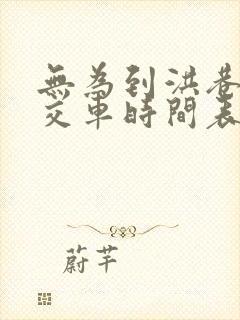 無為到洪巷
交車時間表
蔚芊